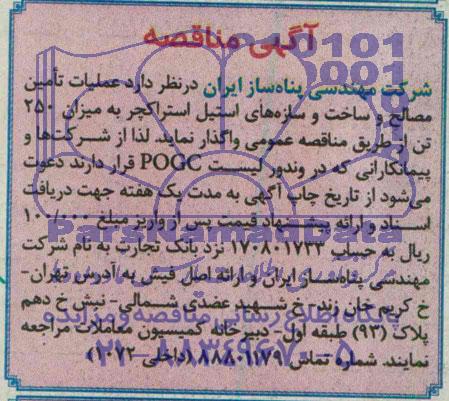 آگهی مناقصه
شرکت مهندسی پناه‌ساز ایران درنظر دارد عملیات تأمین
مصالح و ساخت و سازه‌های استیل استراکچر به میزان ۲۵۰
تن از طریق مناقصه عمومی واگذار نماید. لذا از شرکت‌ها و
پیمانکارانی که در وندور لیست POGC قرار دارند دعوت
می‌شود از تاریخ چاپ آگهی به مدت یک هفته جهت دریافت
اسناد و ارائه پیشنهاد قیمت پس از واریز مبلغ ۱۰۰/۰۰۰
ریال به حساب ۱۷۰۸۰۱۷۳۳ نزد بانک تجارت به نام شرکت
مهندسی پناه‌ساز ایران و ارائه اصل فیش به آدرس تهران-
خ کریم خان زند- خ شهید عضدی شمالی- نبش خ دهم
پلاک (۹۳) طبقه اول- دبیرخانه کمیسیون معاملات مراجعه
نمایند. شماره تماس ۸۸۸۰۹۱۷۹ (داخلی ۱۰۷۲)
ParsNamadData
پایگاه اطلاع رسانی مناقصه و مزایده
۰۲۱-۸۸۳۴۹۶۷۰-۵